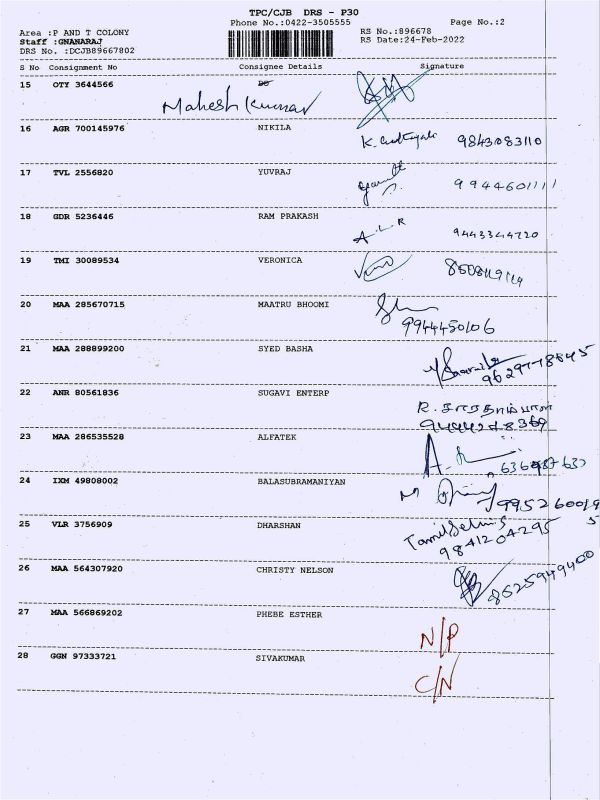 TPC/CJB DRS - P30
Phone No.:0422-3505555 Page No.:2
Area :P AND T COLONY RS No.:896678
Staff :GNANARAJ RS Date:24-Feb-2022
DRS No. :DCJB89667802
S No Consignment No Consignee Details Signature
15 OTY 3644566
Mahesh Kumar
16 AGR 700145976 NIKILA
9843083110
17 TVL 2556820 YUVRAJ
9944601111
18 GDR 5236446 RAM PRAKASH
A L R 9443344720
19 TMI 30089534 VERONICA
20 MAA 285670715 MAATRU BHOOMI
9944450106
21 MAA 288899200 SYED BASHA
22 ANR 80561836 SUGAVI ENTERP
R. சாரதாம்பாள்
9444278369
23 MAA 286535528 ALFATEK
24 IXM 49808002 BALASUBRAMANIYAN
25 VLR 3756909 DHARSHAN
Tamil Selvi
9841204295
26 MAA 564307920 CHRISTY NELSON
8525949400
27 MAA 566869202 PHEBE ESTHER
N/P
28 GGN 97333721 SIVAKUMAR
C/N